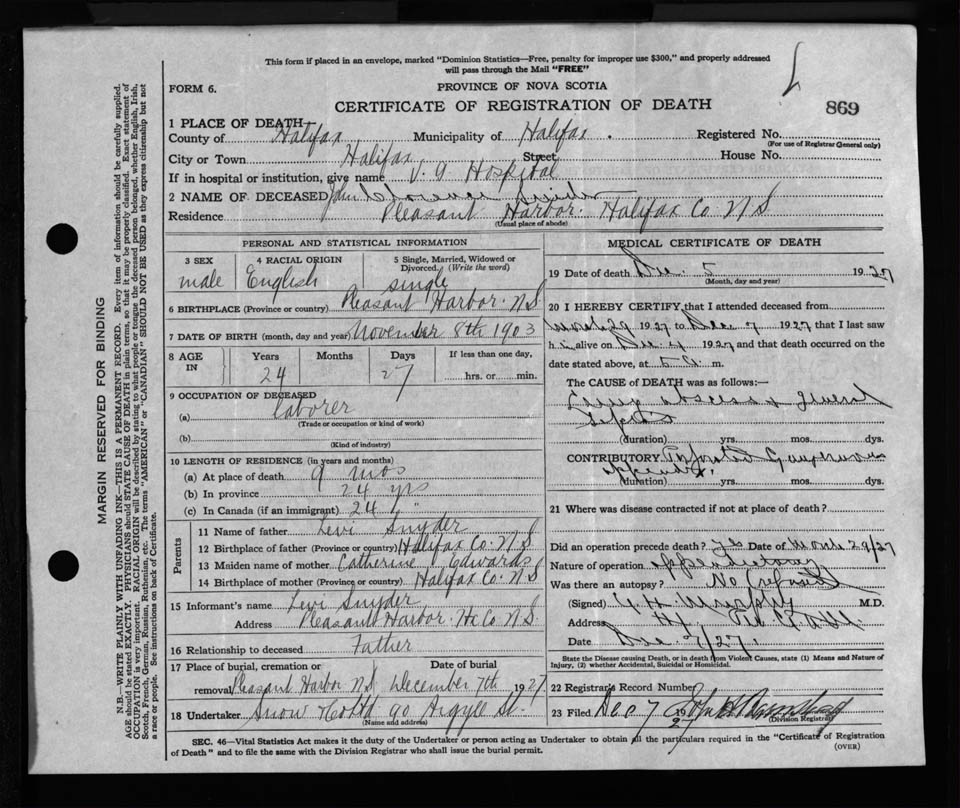 This form if placed in an envelope, marked "Dominion Statistics—Free, penalty for improper use $300," and properly addressed
will pass through the Mail "FREE"
FORM 6.
PROVINCE OF NOVA SCOTIA
CERTIFICATE OF REGISTRATION OF DEATH
869
1 PLACE OF DEATH
County of Halifax Municipality of Halifax. Registered No.
(For use of Registrar General only)
City or Town Halifax Street House No.
If in hospital or institution, give name V. G Hospital
2 NAME OF DECEASED John Snyder
Residence Pleasant Harbor. Halifax Co. N S
(Usual place of abode)
PERSONAL AND STATISTICAL INFORMATION
3 SEX male
4 RACIAL ORIGIN English
5 Single, Married, Widowed or Divorced. (Write the word) single
6 BIRTHPLACE (Province or country) Pleasant Harbor. N S.
7 DATE OF BIRTH (month, day and year) November 8th 1903
8 AGE IN Years Months Days If less than one day,
24 27 hrs. or min.
9 OCCUPATION OF DECEASED
(a) laborer
(Trade or occupation or kind of work)
(b)
(Kind of industry)
10 LENGTH OF RESIDENCE (in years and months)
(a) At place of death 9 mos
(b) In province 24 yrs
(c) In Canada (if an immigrant) 24 "
Parents
11 Name of father Levi Snyder
12 Birthplace of father (Province or country) Halifax Co. N S
13 Maiden name of mother Catherine Edwards
14 Birthplace of mother (Province or country) Halifax Co. N S
15 Informant's name Levi Snyder
Address Pleasant Harbor. Hx Co N S.
16 Relationship to deceased Father
17 Place of burial, cremation or removal Pleasant Harbor N S Date of burial December 7th 1927
18 Undertaker Snow & Co Ltd 90 Argyle St.
(Name and address)
MEDICAL CERTIFICATE OF DEATH
19 Date of death Dec. 5 1927
(Month, day and year)
20 I HEREBY CERTIFY, that I attended deceased from
29 1927 to Dec 1927 that I last saw
h alive on Dec. 1927 and that death occurred on the
date stated above, at 5 m.
The CAUSE of DEATH was as follows:—
abscess & general
sepsis
(duration) yrs. mos. dys.
CONTRIBUTORY Gangrenous
appendix.
(duration) yrs. mos. dys.
21 Where was disease contracted if not at place of death?
Did an operation precede death? yes Date of 29/27
Nature of operation
Was there an autopsy? No (refused)
(Signed) H. Murphy M.D.
Address
Date Dec 7/27.
State the Disease causing Death, or in death from Violent Causes, state (1) Means and Nature of
Injury, (2) whether Accidental, Suicidal or Homicidal.
22 Registrar's Record Number
23 Filed Dec 7 1927
(Division Registrar)
SEC. 46—Vital Statistics Act makes it the duty of the Undertaker or person acting as Undertaker to obtain all the particulars required in the "Certificate of Registration
of Death" and to file the same with the Division Registrar who shall issue the burial permit.
(OVER)
MARGIN RESERVED FOR BINDING
N.B.—WRITE PLAINLY WITH UNFADING INK—THIS IS A PERMANENT RECORD. Every item of information should be carefully supplied.
AGE should be stated EXACTLY. PHYSICIANS should STATE CAUSE OF DEATH in plain terms, so that it may be properly classified. Exact statement of
OCCUPATION is very important. RACIAL ORIGIN will be described by stating to what people or tongue the deceased person belonged, whether English, Irish,
Scotch, French, German, Russian, Ruthenian, etc. The terms "AMERICAN" or "CANADIAN" SHOULD NOT BE USED as they express citizenship but not
a race or people. See instructions on back of Certificate.